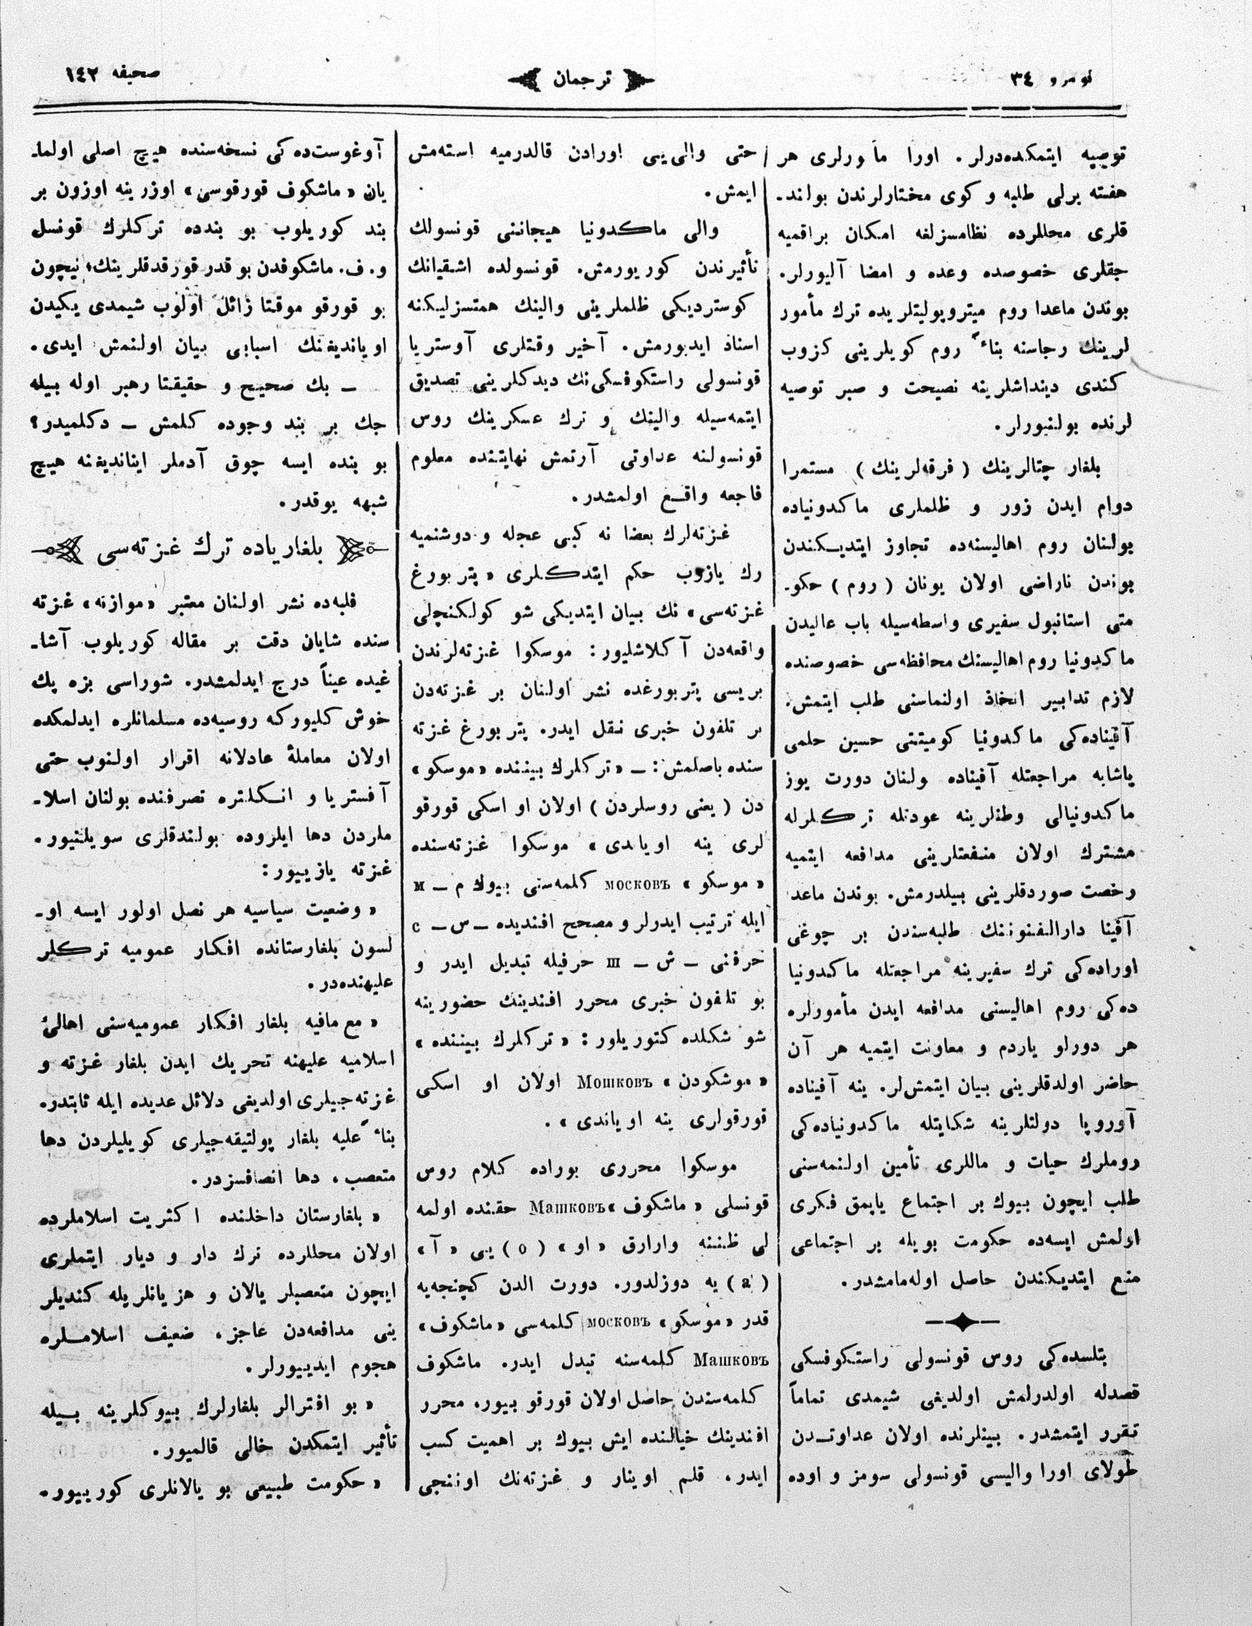 نومرو ٣٤
ترجمان
صحیفه ١٤٢
توصیه ایتمکده‌درلر. اورا مأمورلری هر
هفته یرلی طلبه و کوی مختارلرندن بولند-
قلری محللرده نظامسزلغه امکان براقمیه
جقلری خصوصده وعده و امضا آلیورلر.
بوندن ماعدا روم میتروپولیتلریده ترك مأمور
لرینك رجاسنه بناءً روم کویلرینی کزوب
کندی دینداشلرینه نصیحت و صبر توصیه
لرنده بولنیورلر.
بلغار چتالرینك (فرقه‌لرینك) مستمرا
دوام ایدن زور و ظلملری ماکدونیاده
بولنان روم اهالیسنه‌ده تجاوز ایتدیکندن
بوندن ناراضی اولان یونان (روم) حکو-
متی استانبول سفیری واسطه‌سیله باب عالیدن
ماکدونیا روم اهالیسنك محافظه‌سی خصوصنده
لازم تدابیر اتخاذ اولنماسنی طلب ایتمش.
آفیناده‌کی ماکدونیا کومیتتی حسین حلمی
پاشایه مراجعتله آفیناده ولنان دورت یوز
ماکدونیالی وطنلرینه عودتله ترکلرله
مشترك اولان منفعتلرینی مدافعه ایتمیه
رخصت صوردقلرینی بیلدرمش. بوندن ماعدا
آفینا دارالفنوننك طلبه‌سندن بر چوغی
اوراده‌کی ترك سفیرینه مراجعتله ماکدونیا
ده‌کی روم اهالیسنی مدافعه ایدن مأمورلره
هر دورلو یاردم و معاونت ایتمیه هر آن
حاضر اولدقلرینی بیان ایتمش‌لر. ینه آفیناده
آوروپا دولتلرینه شکایتله ماکدونیاده‌کی
روملرك حیات و ماللری تأمین اولنمه‌سنی
طلب ایچون بیوك بر اجتماع یاپمق فکری
اولمش ایسه‌ده حکومت بویله بر اجتماعی
منع ایتدیکندن حاصل اوله‌مامشدر.
بتلسده‌کی روس قونسولی راستکوفسکی
قصدله اولدرلمش اولدیغی شیمدی تماماً
تقرر ایتمشدر. بینلرنده اولان عداوتدن
طولای اورا والیسی قونسولی سومز و اوده
حتی والی‌یی اورادن قالدرمیه استه‌مش
ایمش.
والی ماکدونیا هیجاننی قونسولك
تأثیرندن کوریورمش. قونسولده اشقیانك
کوستردیکی ظلملرینی والینك همتسزلیکنه
اسناد ایدیورمش. آخیر وقتلری آوستریا
قونسولی راستکوفسکی‌نك دیدکلرینی تصدیق
ایتمه‌سیله والینك و ترك عسکرینك روس
قونسولنه عداوتی آرتمش نهایتنده معلوم
فاجعه واقع اولمشدر.
غزته‌لرك بعضا نه کبی عجله و دوشنمیه
رك یازوب حکم ایتدکلری «پتربورغ
غزته‌سی» نك بیان ایتدیکی شو کولکنچلی
واقعه‌دن آکلاشلیور: موسکوا غزته‌لرندن
بریسی پتربورغده نشر اولنان بر غزته‌دن
بر تلفون خبری نقل ایدر. پتربورغ غزته
سنده باصلمش: — «ترکلرك بیننده «موسکو»
دن (یعنی روسلردن) اولان او اسکی قورقو
لری ینه اویاندی» موسکوا غزته‌سنده
«موسکو» московъ کلمه‌سنی بیوك م — м
ایله ترتیب ایدرلر و مصحح افندیده — س — с
حرفنی — ش — ш حرفیله تبدیل ایدر و
بو تلفون خبری محرر افندینك حضورینه
شو شکلده کتوریلور: «ترکلرك بیننده»
«موشکودن» Мошковъ اولان او اسکی
قورقولری ینه اویاندی».
موسکوا محرری بوراده کلام روس
قونسلی «ماشکوف» Машковъ حقنده اولمه
لی ظننه وارارق «او» (о) یی «آ»
(а) یه دوزلدور. دورت الدن کچنجه‌یه
قدر «موسکو» московъ کلمه‌سی «ماشکوف»
Машковъ کلمه‌سنه تبدل ایدر. ماشکوف
کلمه‌سندن حاصل اولان قورقو بیور. محرر
افندینك خیالنده ایش بیوك بر اهمیت کسب
ایدر، قلم اوینار و غزته‌نك اوننجی
آوغوست‌ده کی نسخه‌سنده هیچ اصلی اولما-
یان «ماشکوف قورقوسی» اوزرینه اوزون بر
بند کوریلوب بو بندده ترکلرك قونسل
و. ف. ماشکوفدن بو قدر قورقدقلرینك؛ نیچون
بو قورقو موقتا زائل اولوب شیمدی یکیدن
اویاندیغنك اسبابی بیان اولنمش ایدی.
— بك صحیح و حقیقتا رهبر اوله بیله
جك بر بند وجوده کلمش — دکلمیدر؟
بو بنده ایسه چوق آدملر ایناندیغنه هیچ
شبهه یوقدر.
بلغاریاده ترك غزته‌سی
فلبه‌ده نشر اولنان معتبر «موازنه» غزته
سنده شایان دقت بر مقاله کوریلوب آشا-
غیده عیناً درج ایدلمشدر. شوراسی بزه پك
خوش کلیورکه روسیه‌ده مسلمانلره ایدلمکده
اولان معاملهٔ عادلانه اقرار اولنوب حتی
آفستریا و انکلتره تصرفنده بولنان اسلا-
ملردن دها ایلروده بولندقلری سویلنیور.
غزته یازییور:
«وضعیت سیاسیه هر نصل اولور ایسه او-
لسون بلغارستانده افکار عمومیه ترکلر
علیهنده‌در.
«مع مافیه بلغار افکار عمومیه‌سنی اهالیٔ
اسلامیه علیهنه تحریك ایدن بلغار غزته و
غزته‌جیلری اولدیغی دلائل عدیده ایله ثابتدر.
بناءً علیه بلغار پولتیقه‌جیلری کویلیلردن دها
متعصب، دها انصافسزدر.
«بلغارستان داخلنده اکثریت اسلاملرده
اولان محللرده ترك دار و دیار ایتملری
ایچون متعصبلر یالان و هزیانلریله کندیلر
ینی مدافعه‌دن عاجز، ضعیف اسلاملره
هجوم ایدییورلر.
«بو افترالر بلغارلرك بیوکلرینه بیله
تأثیر ایتمکدن خالی قالمیور.
«حکومت طبیعی بو یالانلری کورییور.